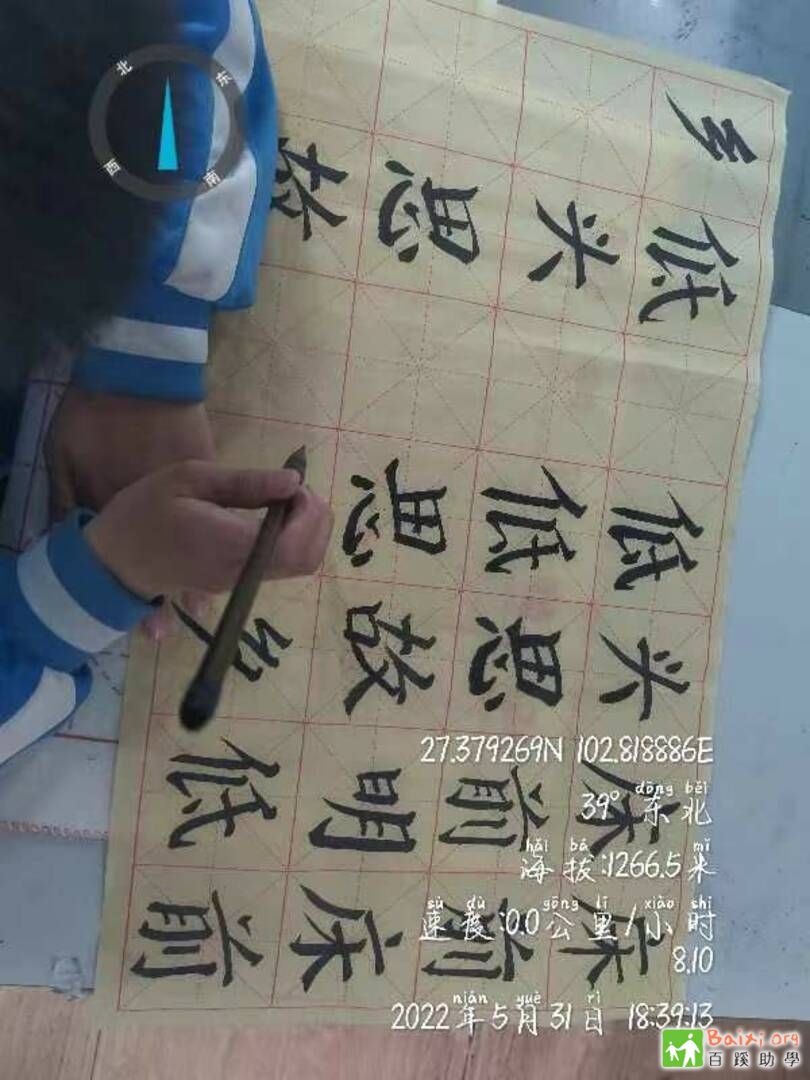 床前床前
床前明低
头思故乡
低低思
低头思故
乡
北
东
南
西
27.379269N 102.818886E
dōng běi
39° 东北
hǎi bá mǐ
海拔:1266.5米
sù dù gōng lǐ xiǎo shí
速度:0.0公里/小时
8.10
nián yuè rì
2022年5月31日 18:39:13
Baixi.org
百蹊助學